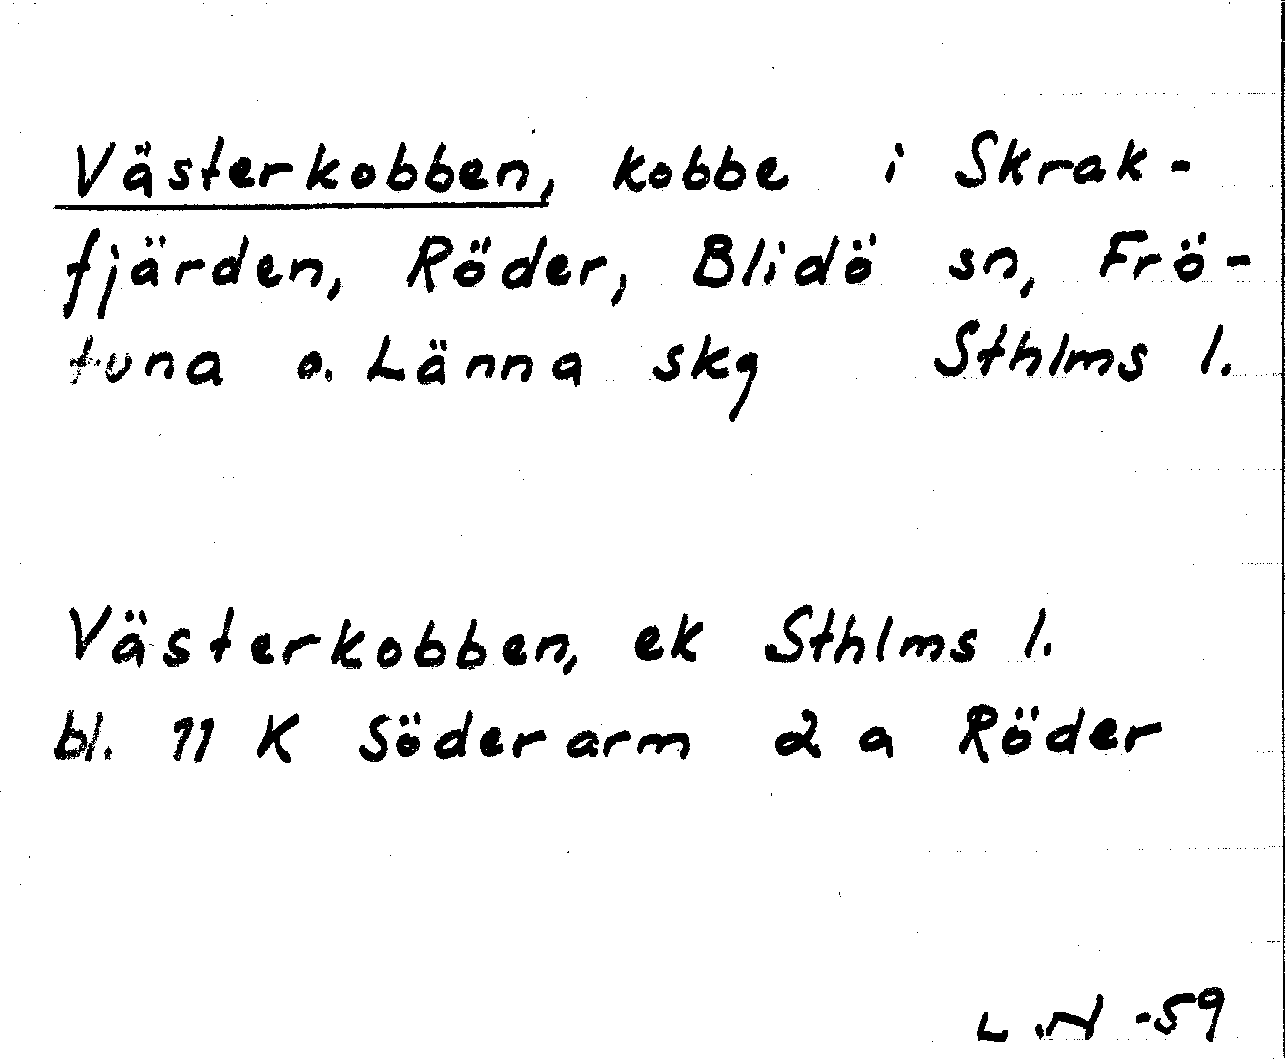 Västerkobben, kobbe i Skrak-
fjärden, Röder, Blidö sn, Frö-
tuna o. Länna skg Sthlms l.
Västerkobben, ek Sthlms l.
bl. 11 K Söderarm 2 a Röder
L.N -59